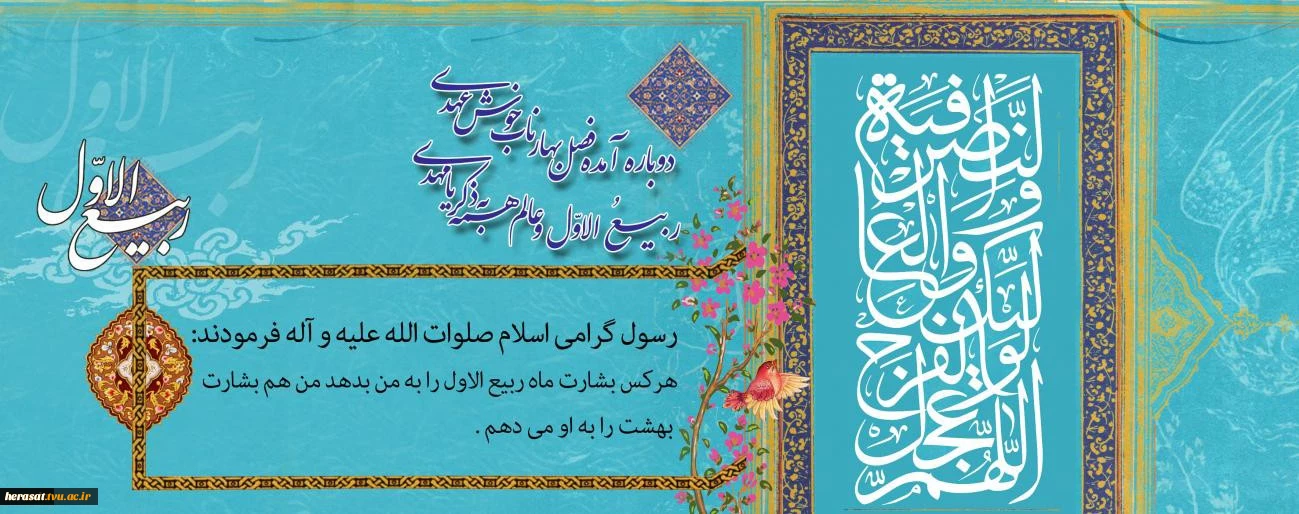 اللّهُمَّ عَجِّل لِوَلیِّکَ الفَرَجَ وَالعافیَةَ وَالنَّصرَ
دوباره آمده فصل بهار ناب خوش عهدی
ربیعُ الاوّل و عالم همه به ذکر یا مهدی
ربیع الاوّل
رسول گرامی اسلام صلوات الله علیه و آله فرمودند:
هرکس بشارت ماه ربیع الاول را به من بدهد من هم بشارت
بهشت را به او می دهم .
ربیع الاوّل
herasat.tvu.ac.ir